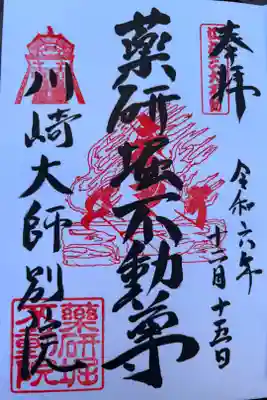 奉拝
令和六年
十二月十五日
薬研堀不動尊
川崎大師別院
薬研堀
不動院